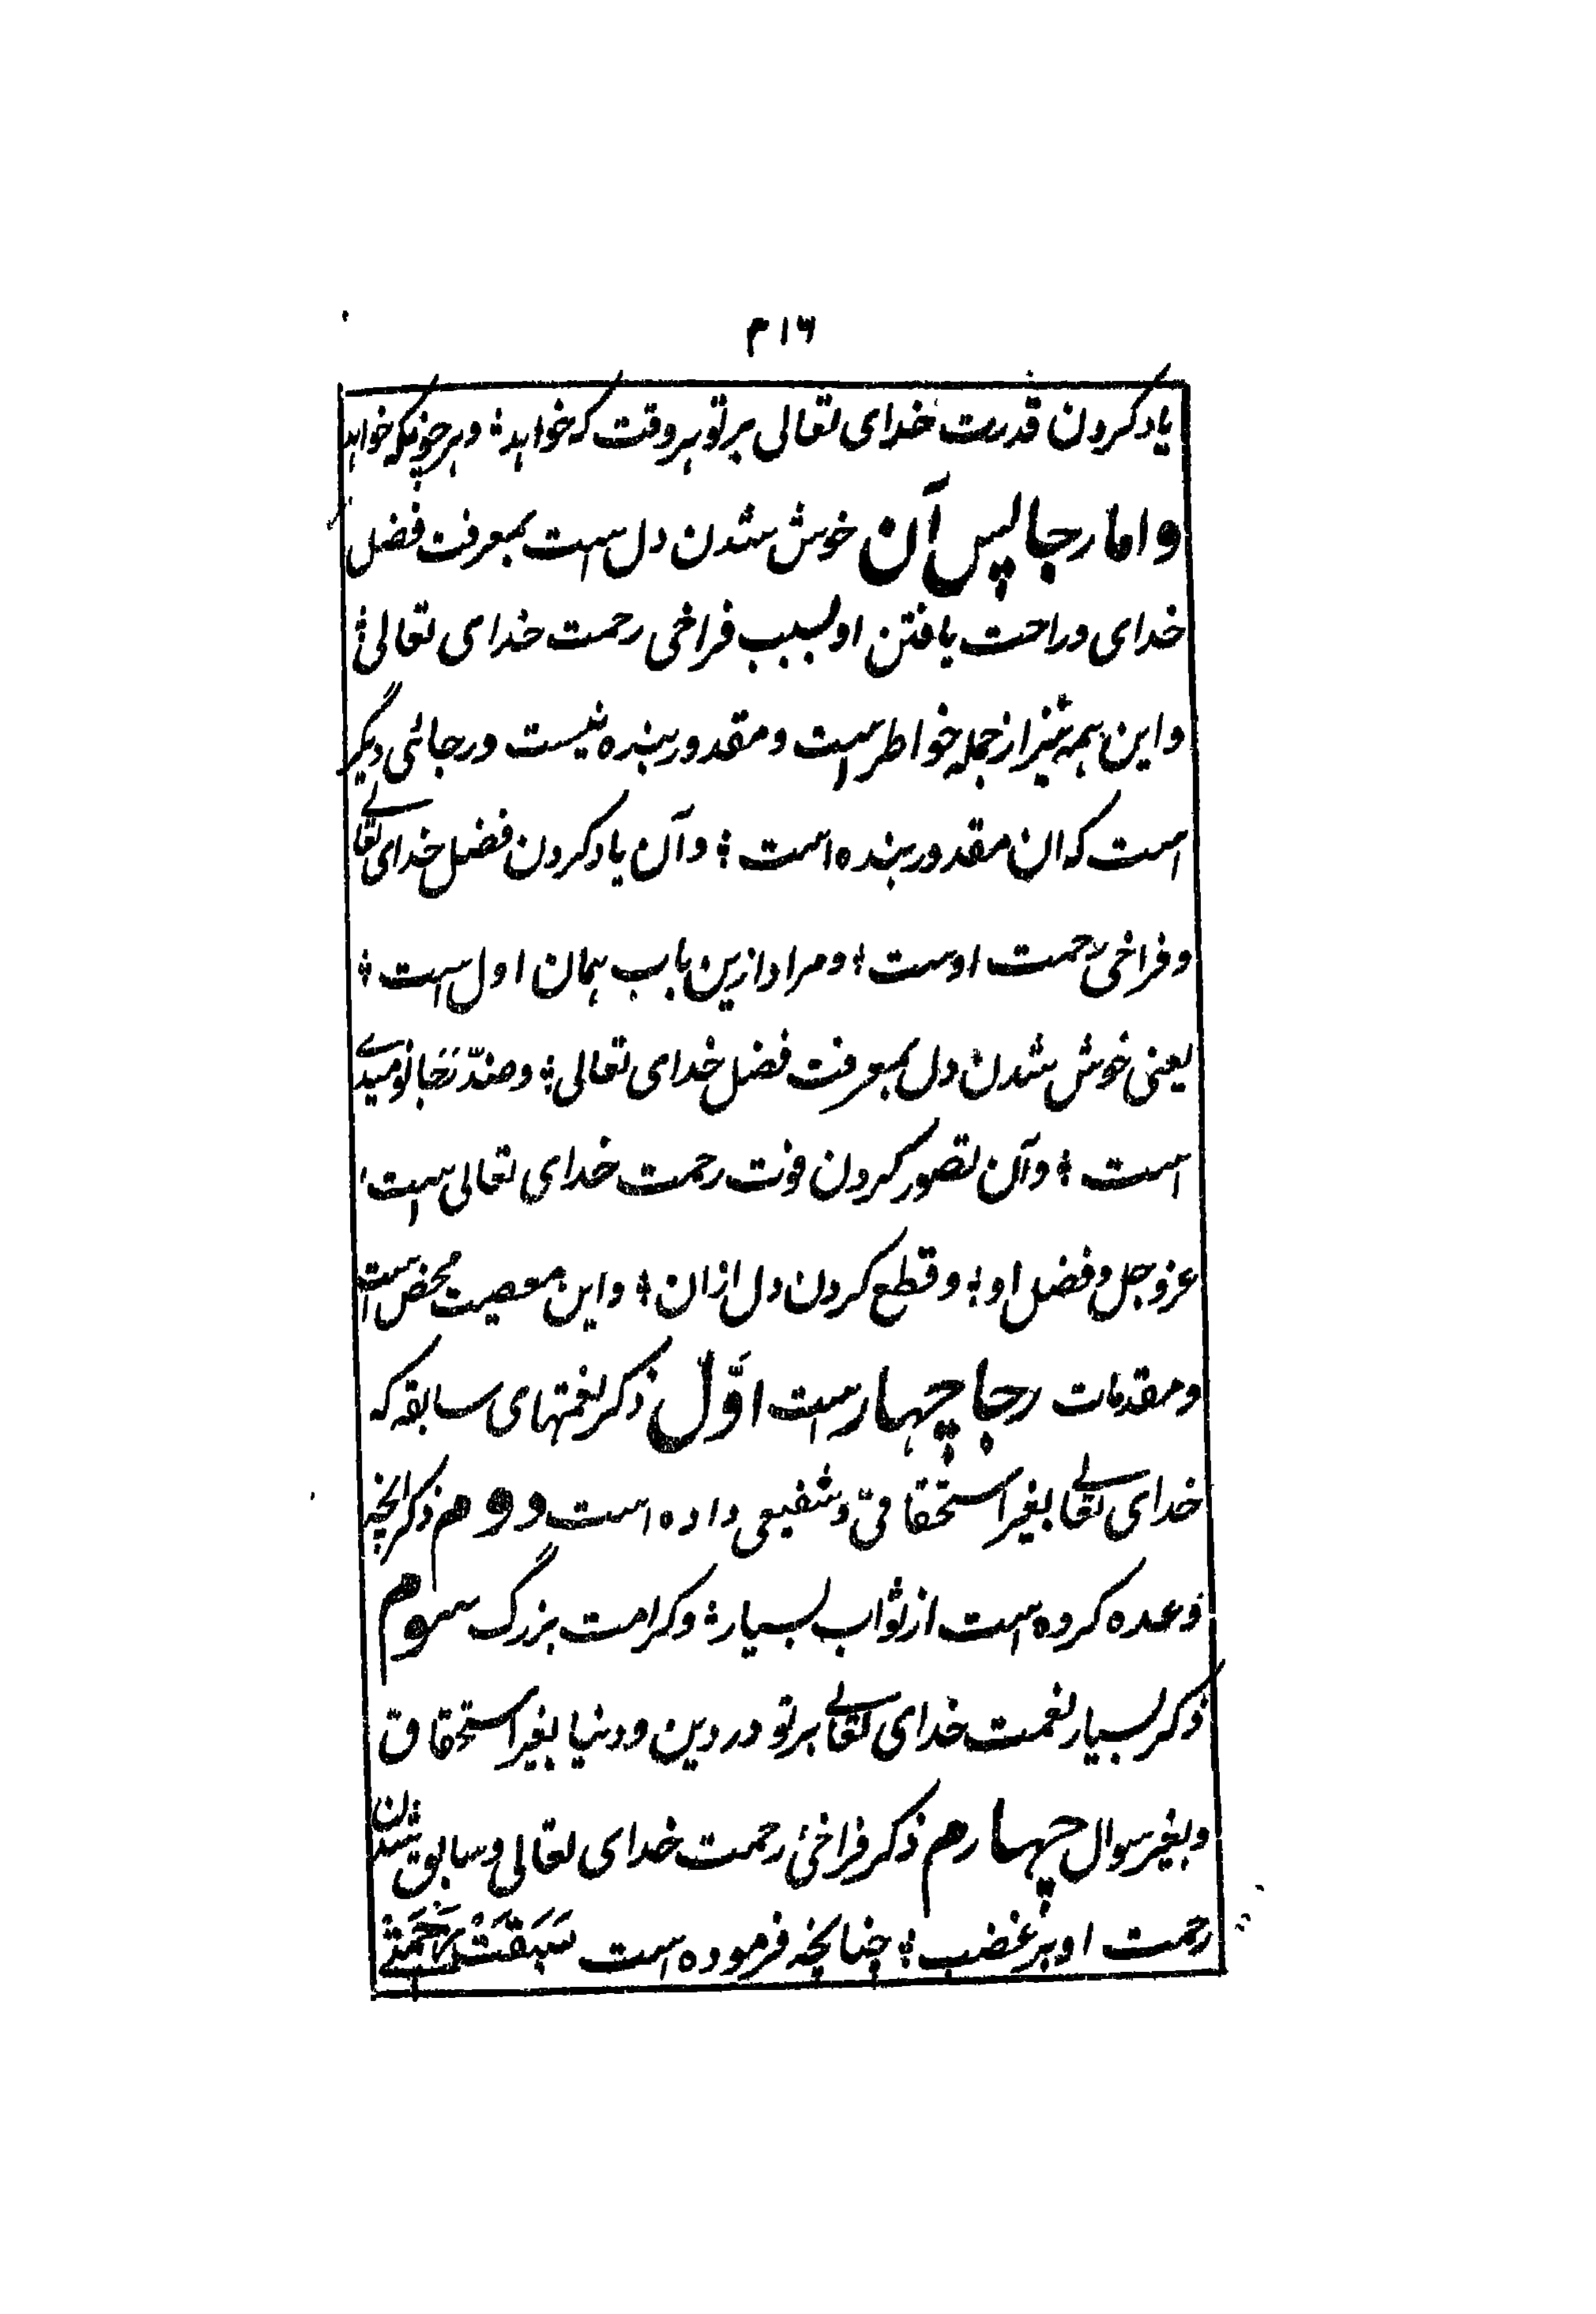 ۴۱۶
یاد کردن قدرت خدای تعالی بر تو هر وقت که خواهد؛ و هر چونکه خواهد
و اما رجا پس آن خوش شدن دل است بمعرفت فضل
خدای و راحت یافتن او بسبب فراخی رحمت خدای تعالی؛
و این همه نیز از جمله خواطر است و مقدور بنده نیست و رجائی دیگر
است که ان مقدور بنده است؛ و آن یاد کردن فضل خدای تعالے
و فراخی رحمت اوست؛ و مراد ازین باب همان اول است؛
یعنی خوش شدن دل بمعرفت فضل خدای تعالی؛ و ضدّ رَجَا نومیدے
است؛ و آن تصور کردن فوت رحمت خدای تعالی است؛
عز و جل و فضل او؛ و قطع کردن دل ازان؛ و این معصیت محض است
و مقدمات رجا چهار است اوَّل ذکر نعمتهای سابقه که
خدای تعالے بغیر استحقاقی و شفیعی داده است دوم ذکر انچه
وعده کرده است از ثواب بسیار؛ و کرامت بزرگ سوم
ذکر بسیار نعمت خدای تعالے بر تو در دین و دنیا بغیر استحقاق
و بغیر سوال چهارم ذکر فراخئ رحمت خدای تعالی و سابق شدن
رحمت او بر غضب؛ چنانچه فرموده است سَبَقَتْ رَحْمَتِیْ